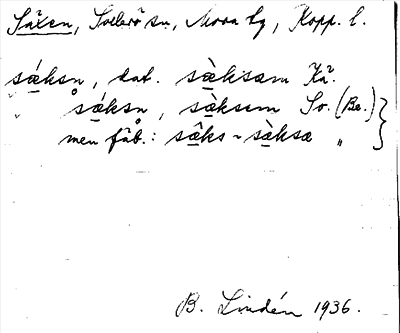 Säxen, Sollerö sn, Mora tg, Kopp. l.
sǽksn̥, dat. sæ̀ksæm Kä.
" sǽksn̥, sæ̀ksem So. (Be.)
men fäb.: sæ̂ks ~ sæ̀ksæ "
B. Lindén 1936.